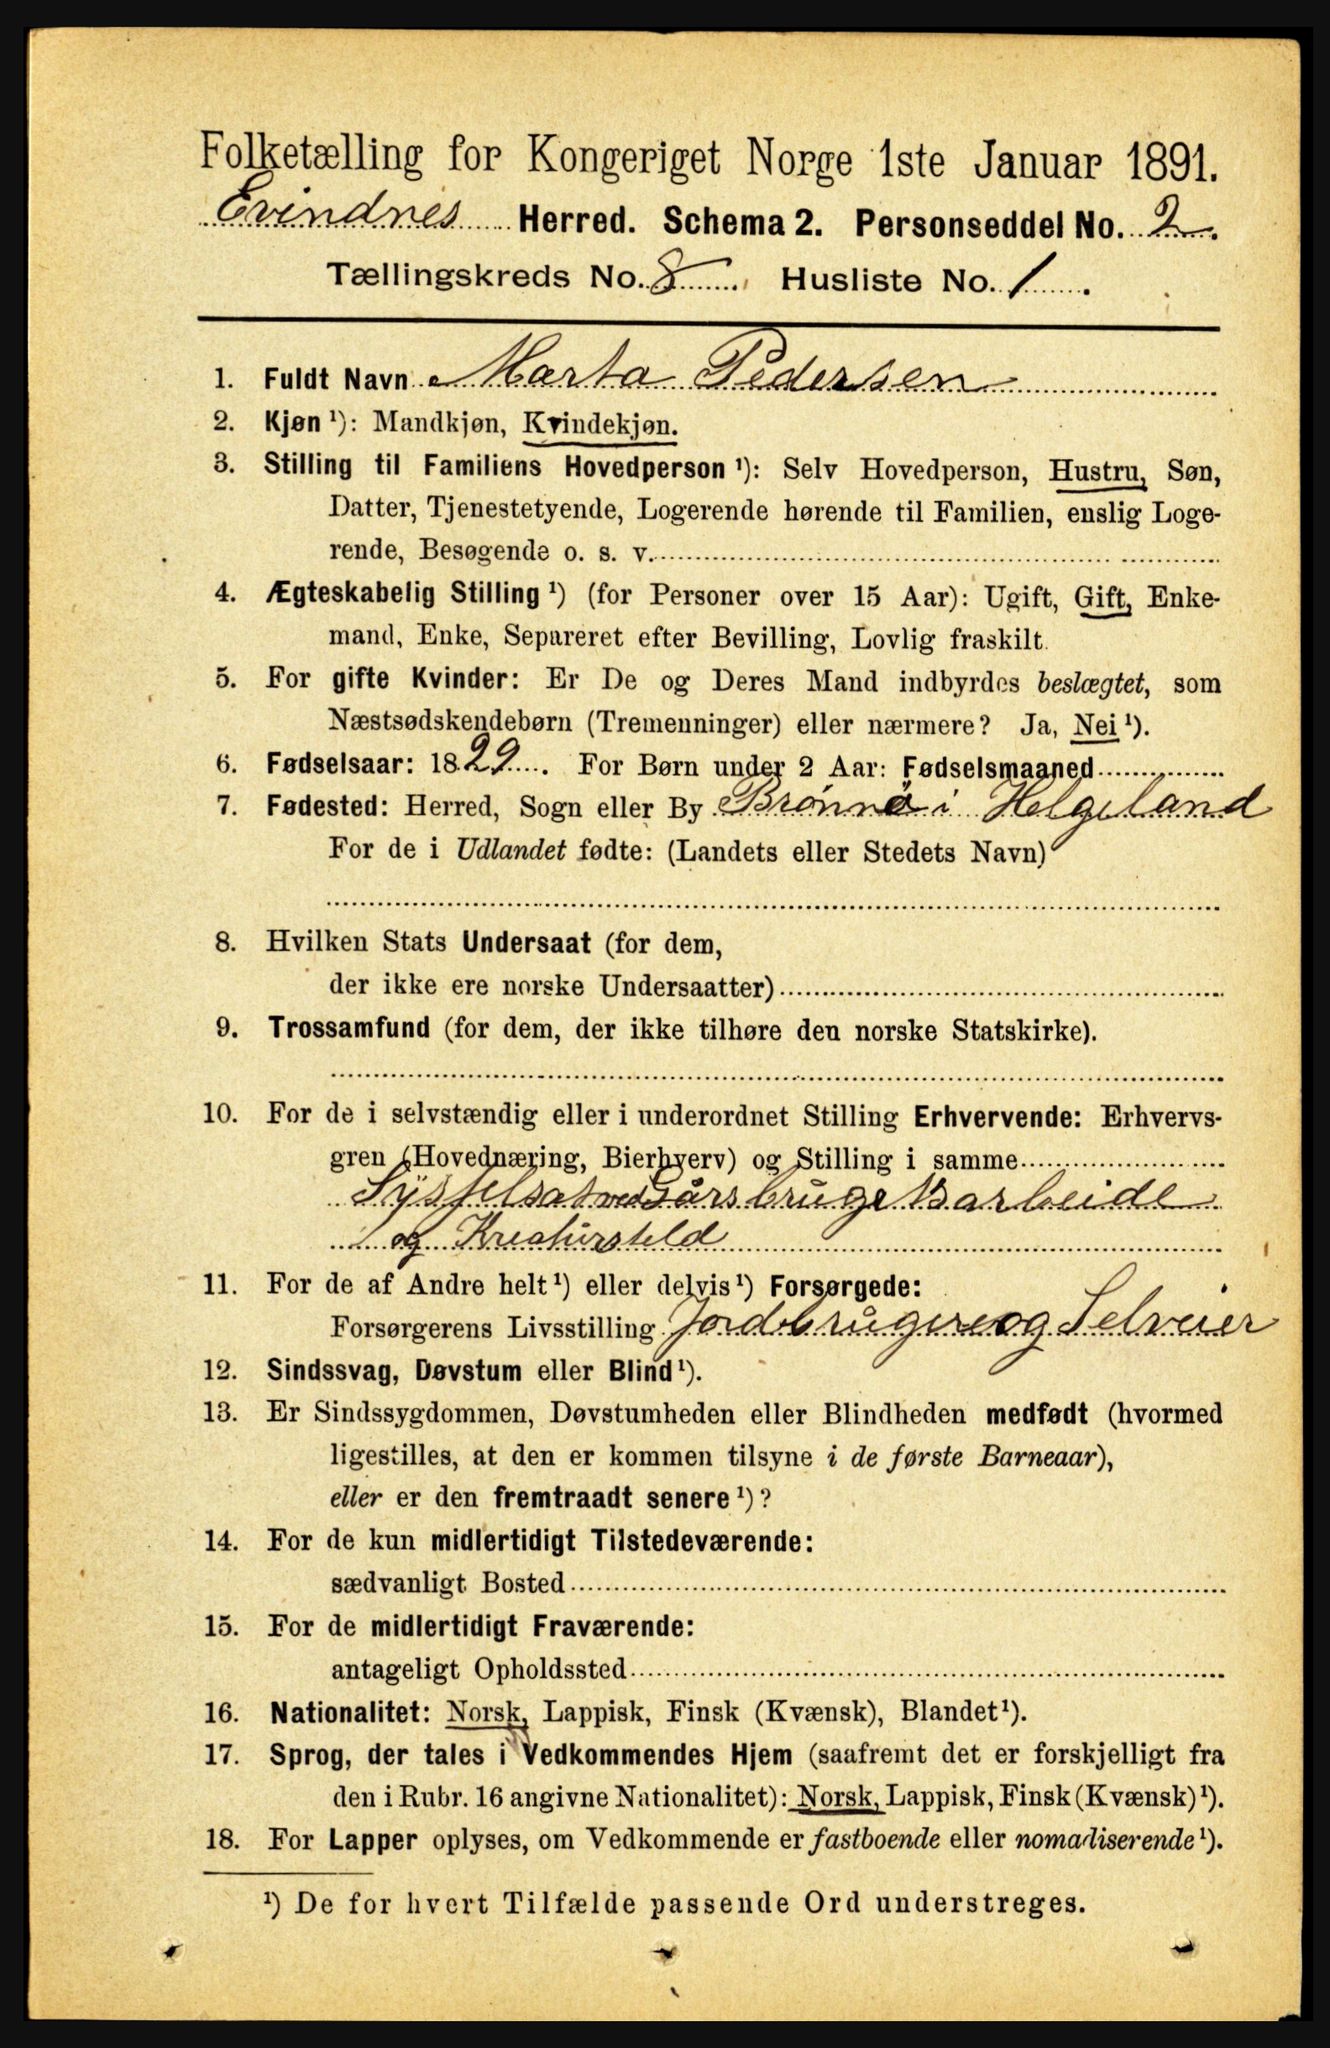 Folketælling for Kongeriget Norge 1ste Januar 1891.
Evindnes Herred. Schema 2. Personseddel No. 2.
Tællingskreds No. 8. Husliste No. 1.
1. Fuldt Navn Marta Pedersen
2. Kjøn ¹): Mandkjøn, Kvindekjøn.
3. Stilling til Familiens Hovedperson ¹): Selv Hovedperson, Hustru, Søn,
Datter, Tjenestetyende, Logerende hørende til Familien, enslig Loge-
rende, Besøgende o. s. v.
4. Ægteskabelig Stilling ¹) (for Personer over 15 Aar): Ugift, Gift, Enke-
mand, Enke, Separeret efter Bevilling, Lovlig fraskilt.
5. For gifte Kvinder: Er De og Deres Mand indbyrdes beslægtet, som
Næstsødskendebørn (Tremenninger) eller nærmere? Ja, Nei ¹).
6. Fødselsaar: 1829. For Børn under 2 Aar: Fødselsmaaned
7. Fødested: Herred, Sogn eller By Brønnø i Helgeland
For de i Udlandet fødte: (Landets eller Stedets Navn)
8. Hvilken Stats Undersaat (for dem,
der ikke ere norske Undersaatter)
9. Trossamfund (for dem, der ikke tilhøre den norske Statskirke).
10. For de i selvstændig eller i underordnet Stilling Erhvervende: Erhvervs-
gren (Hovednæring, Bierhverv) og Stilling i samme
Sysselsat ved Gårsbrugets arbeide
og Kreatursteld
11. For de af Andre helt ¹) eller delvis ¹) Forsørgede:
Forsørgerens Livsstilling Jordbruger og Selveier
12. Sindssvag, Døvstum eller Blind ¹).
13. Er Sindssygdommen, Døvstumheden eller Blindheden medfødt (hvormed
ligestilles, at den er kommen tilsyne i de første Barneaar),
eller er den fremtraadt senere ¹)?
14. For de kun midlertidigt Tilstedeværende:
sædvanligt Bosted
15. For de midlertidigt Fraværende:
antageligt Opholdssted
16. Nationalitet: Norsk, Lappisk, Finsk (Kvænsk), Blandet ¹).
17. Sprog, der tales i Vedkommendes Hjem (saafremt det er forskjelligt fra
den i Rubr. 16 angivne Nationalitet): Norsk, Lappisk, Finsk (Kvænsk) ¹).
18. For Lapper oplyses, om Vedkommende er fastboende eller nomadiserende ¹).
¹) De for hvert Tilfælde passende Ord understreges.